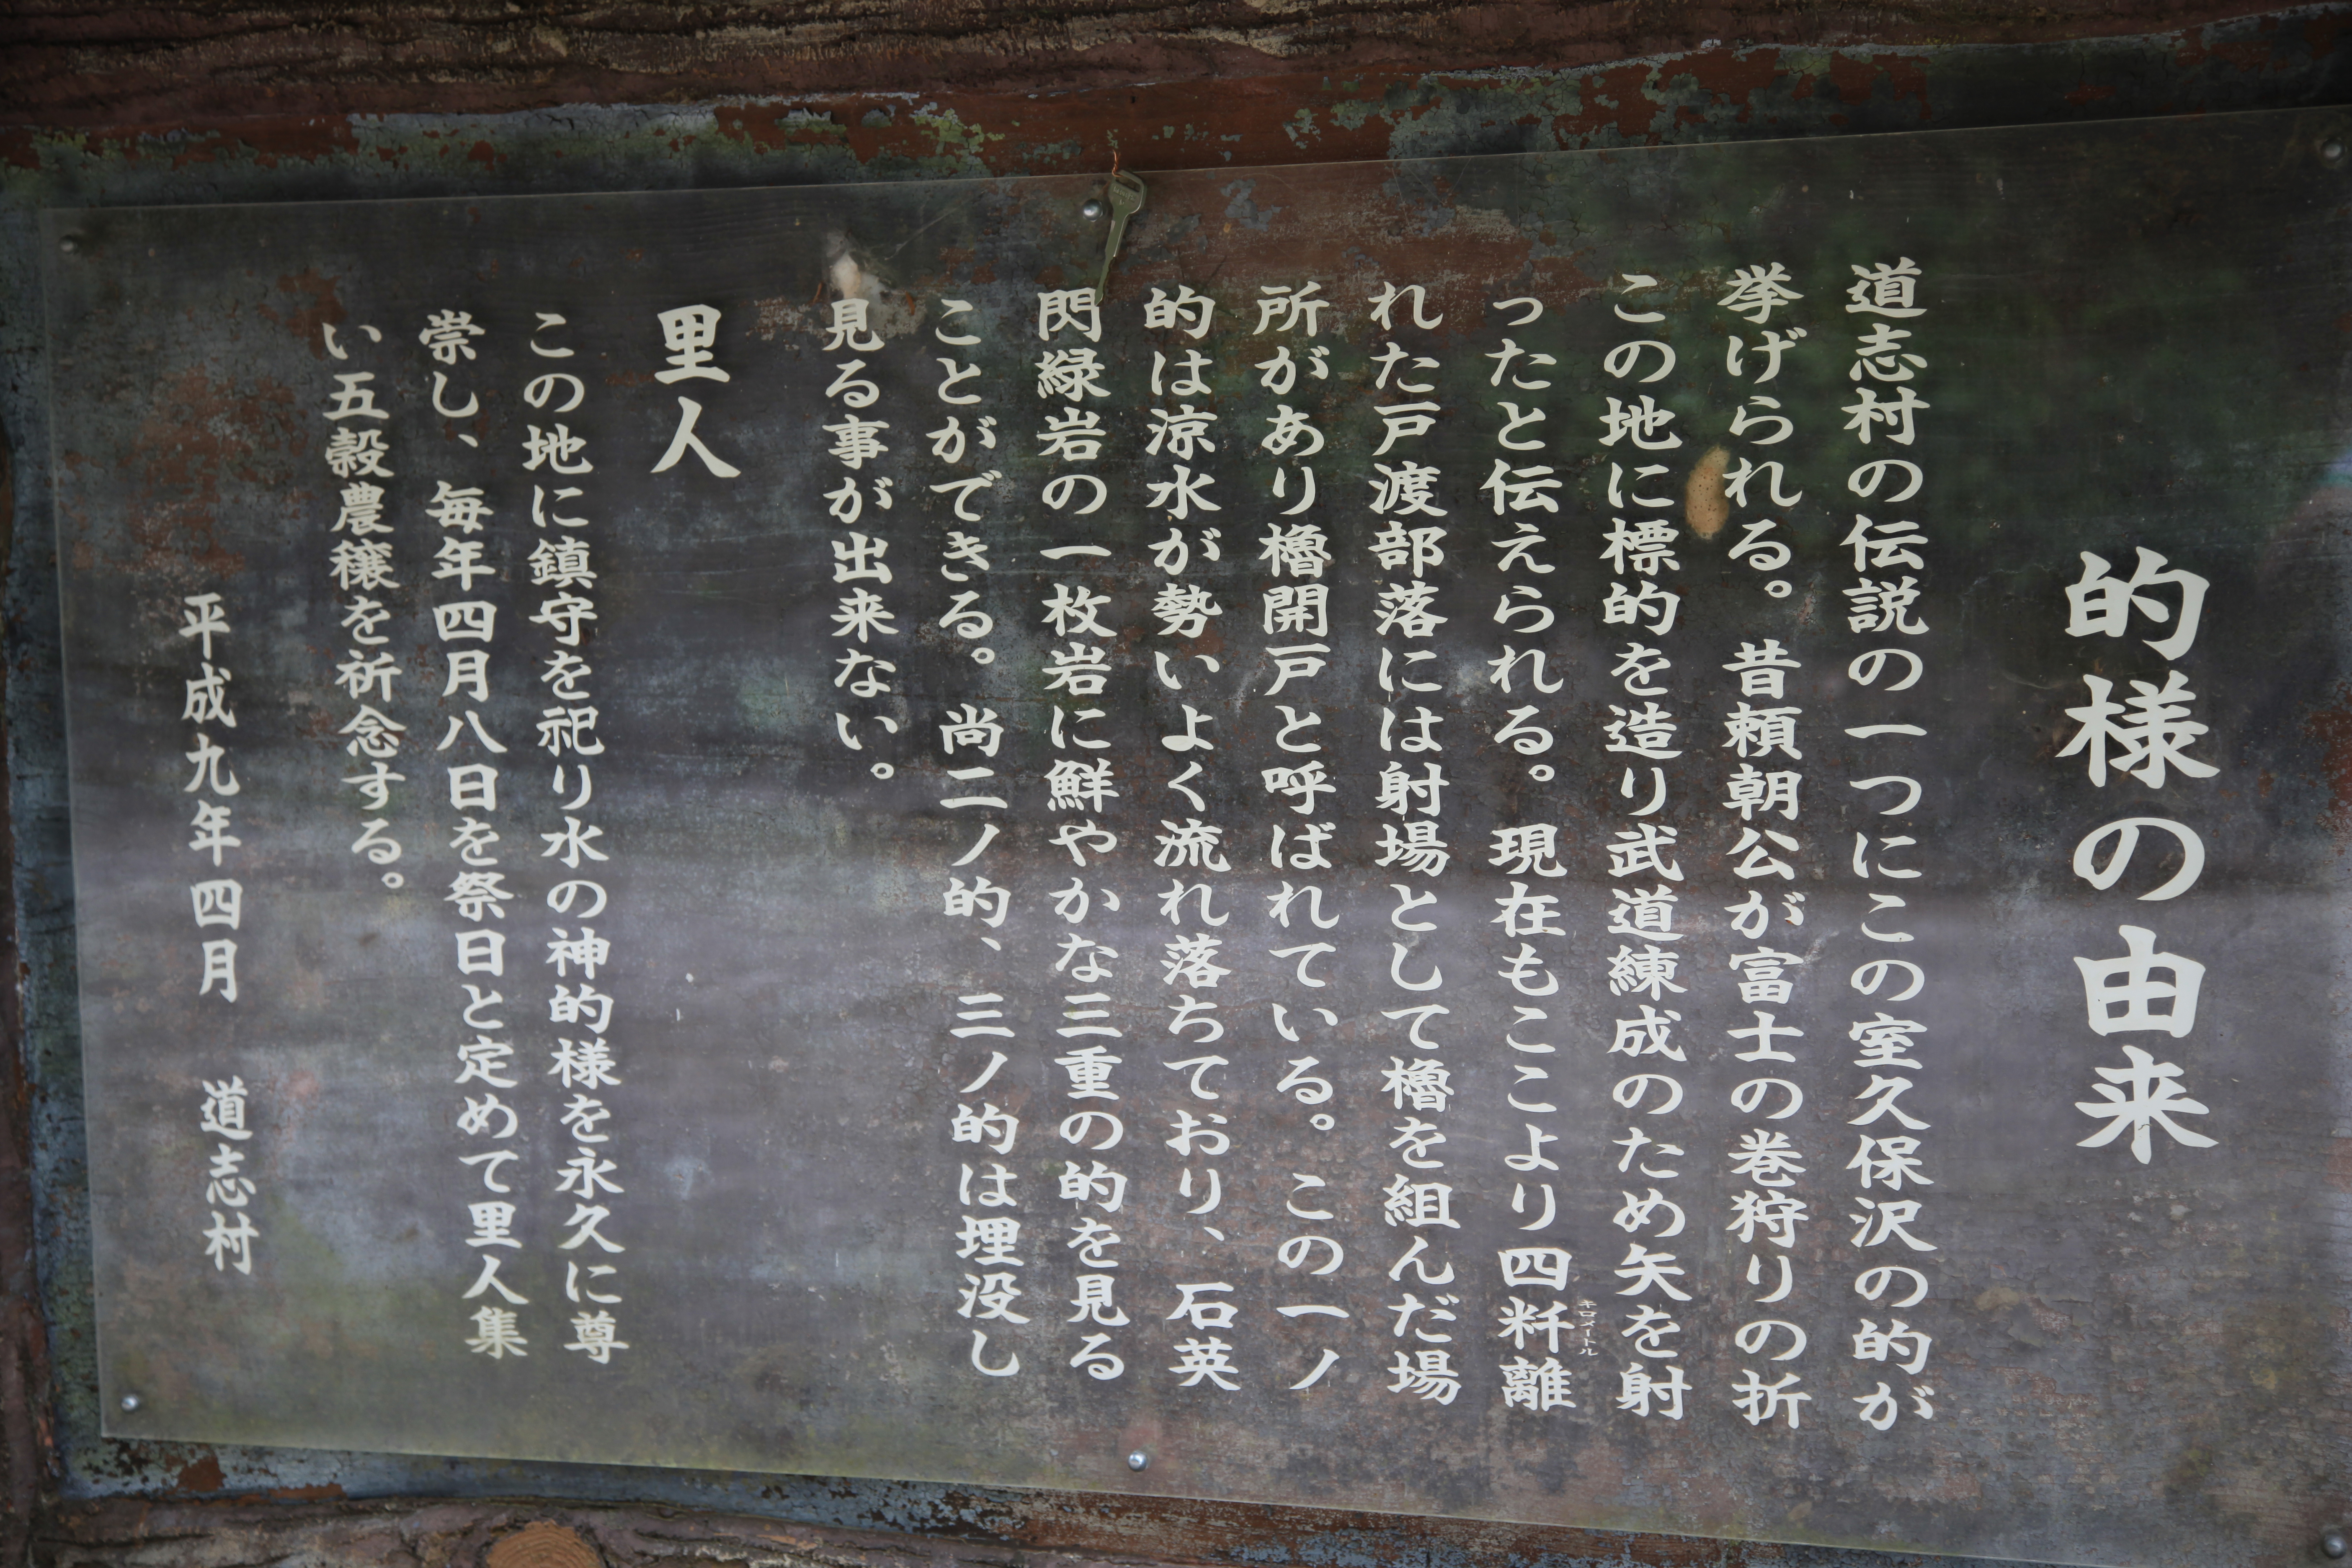 的様の由来
道志村の伝説の一つにこの室久保沢の的が
挙げられる。昔頼朝公が富士の巻狩りの折
この地に標的を造り武道練成のため矢を射
ったと伝えられる。現在もここより四粁離
キロメートル
れた戸渡部落には射場として櫓を組んだ場
所があり櫓開戸と呼ばれている。この一ノ
的は涼水が勢いよく流れ落ちており、石英
閃緑岩の一枚岩に鮮やかな三重の的を見る
ことができる。尚二ノ的、三ノ的は埋没し
見る事が出来ない。
里人
この地に鎮守を祀り水の神的様を永久に尊
崇し、毎年四月八日を祭日と定めて里人集
い五穀農穣を祈念する。
平成九年四月 道志村